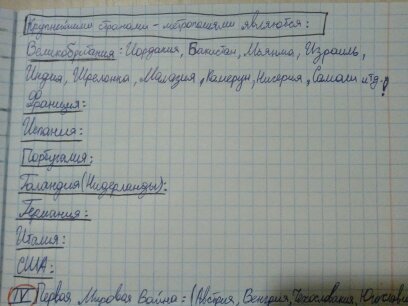 Крупнейшими странами-метрополиями являются:
Великобритания: Иордания, Пакистан, Мьянма, Израиль,
Индия, Шреланка, Малазия, Камерун, Нигерия, Самоли итд.
Франция:
Испания:
Португалия:
Галандия (Нидерланды):
Германия:
Италия:
США:
IV Первая Мировая Война = (Австрия, Венгрия, Чехословакия, Югослави